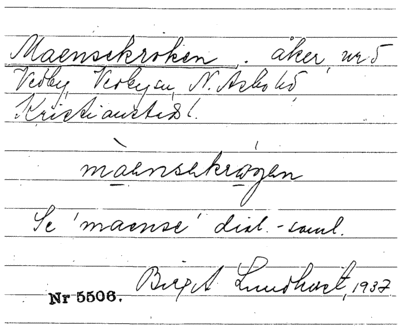 Maensekroken. åker, nr 5
Vedby, Vedbyn, N. Asbo hd,
Kristianstads l.
màensekrǻgen
Se 'maense' dial.-saml.
Birgit Lundkvist, 1937
Nr 5506.